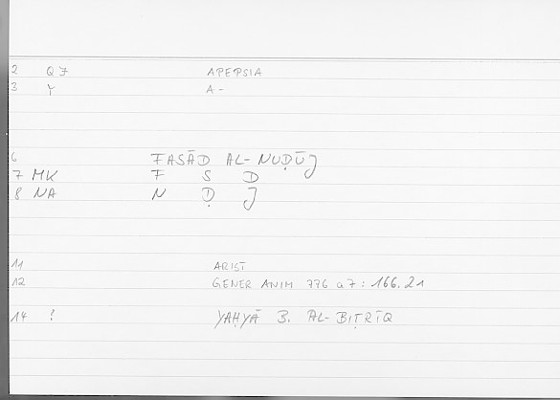 2 QJ APEPSIA
3 Y A-
6 FASĀD AL-NUḌŪJ
7 MK F S D
8 NA N Ḍ J
11 ARIST
12 GENER ANIM 776 a7 : 166.21
14 ! YAḤYĀ B. AL-BIṬRĪQ